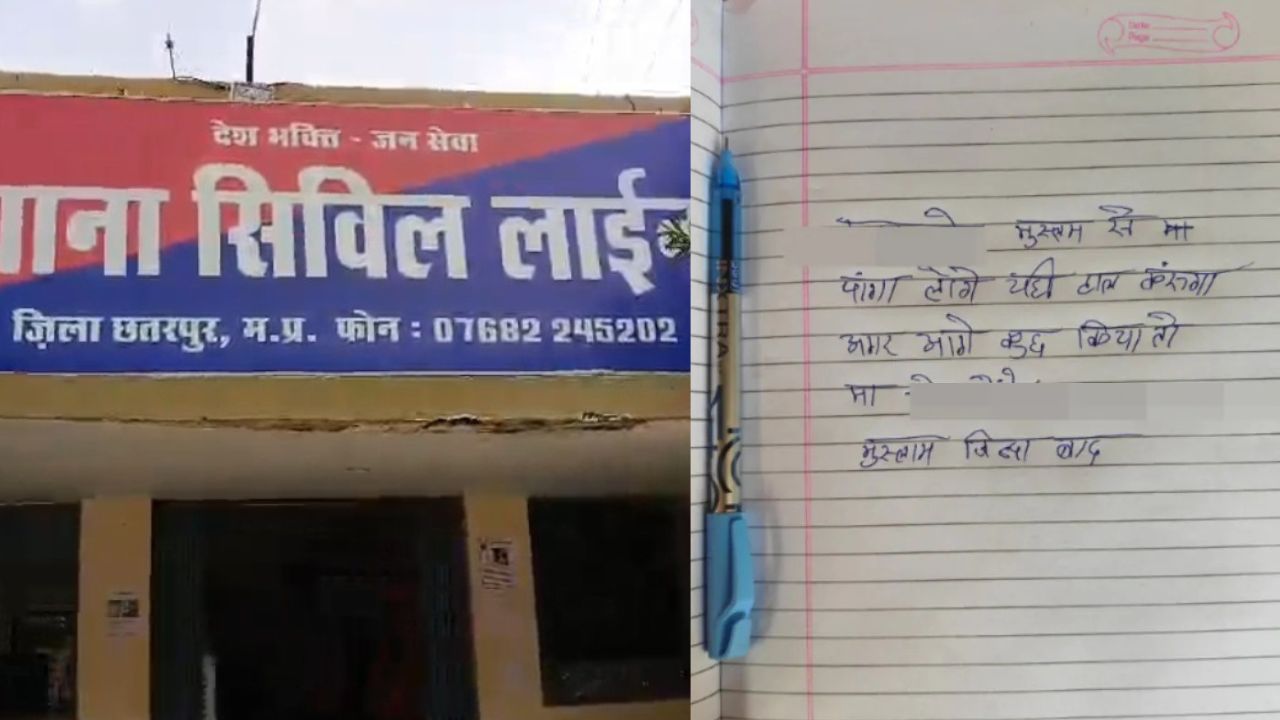 देश भक्ति - जन सेवा
थाना सिविल लाईन
ज़िला छतरपुर, म.प्र. फोन : 07682 245202
Date
Page
मुस्लम से मा
पांगा लोगे यही हाल करूंगा
अगर आगे कुछ किया तो
मा
मुस्लाम जिन्दा बाद